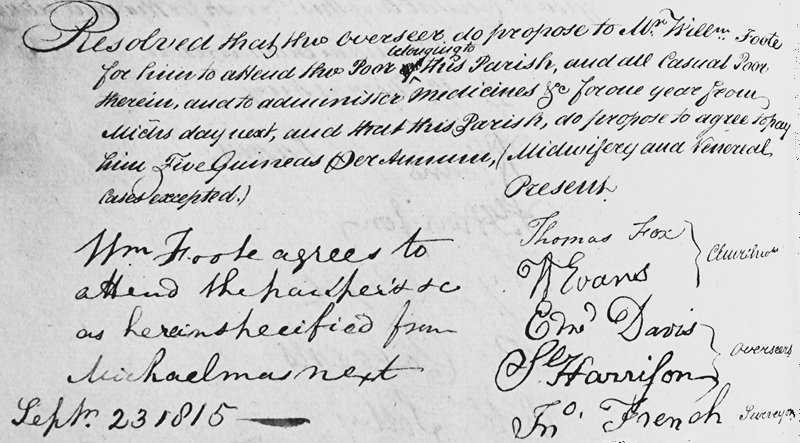 Resolved that the Overseer, do propose to Mr. Willm. Foote
for him to attend the Poor belonging to this Parish, and all Casual Poor
therein, and to administer Medicines &c for one year from
Michs day next, and that this Parish, do propose to agree to pay
him Five Guineas Per Annum, (Midwifery and Venereal
Cases excepted.)
Present
Wm Foote agrees to
attend the paupers &c
as herein specified from
Michaelmas next
Septr. 23 1815
Thomas Fox
W Evans
Edwd Davis
Harrison
Jno. French
Overseers
Surveyor